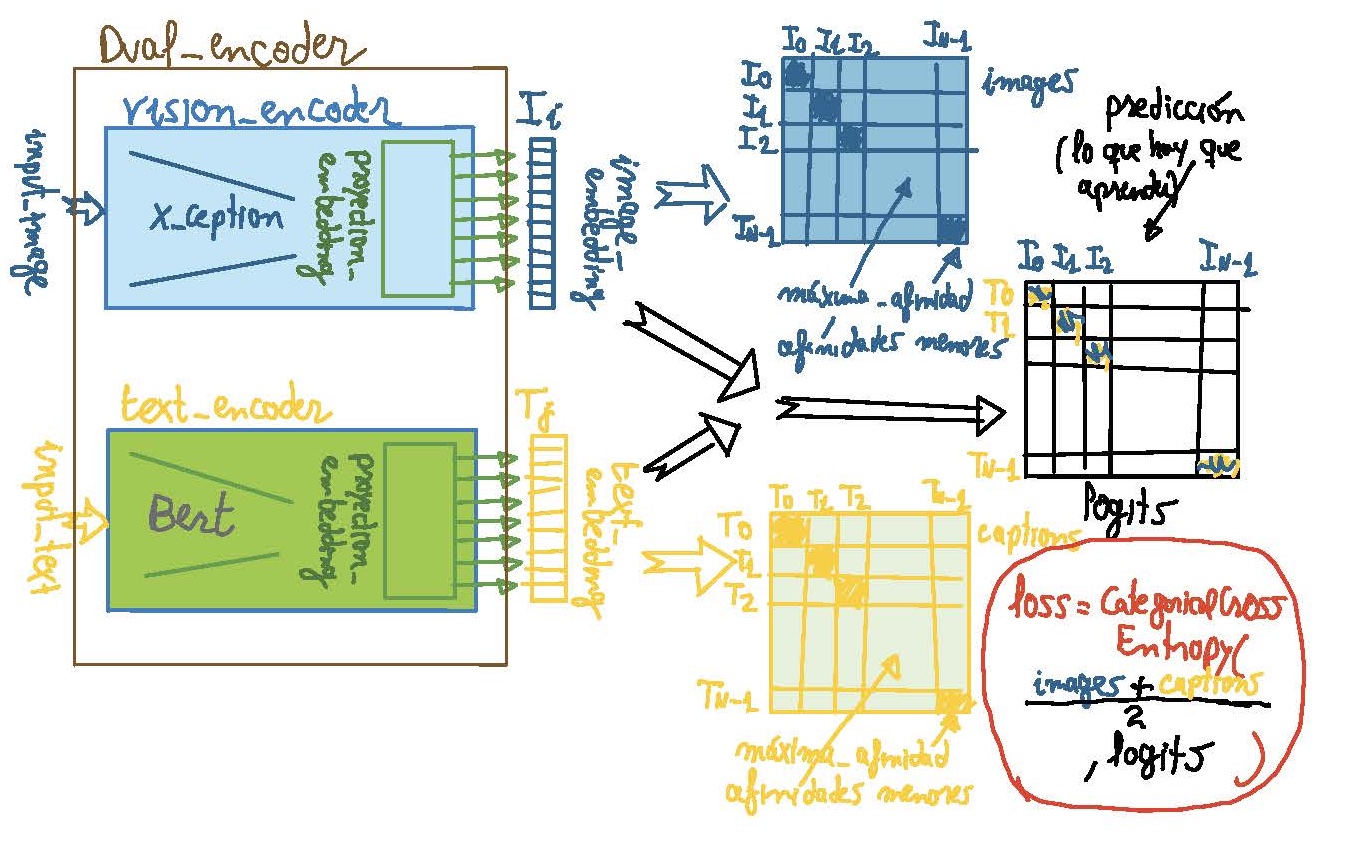 Dual_encoder
vision_encoder
input_image
x_ception
proyection_
embedding
Ii
image_
embedding
text_encoder
input_text
Bert
proyection_
embedding
Tj
text_
embedding
I0 I1 I2 IN-1
I0
I1
I2
IN-1
images
máxima_afinidad
afinidades menores
predicción
(lo que hay que
aprender)
I0 I1 I2 IN-1
T0
T1
TN-1
logits
T0 T1 T2 TN-1
T0
T1
T2
TN-1
captions
máxima_afinidad
afinidades menores
loss = CategoricalCross
Entropy(
images + captions
2
, logits )